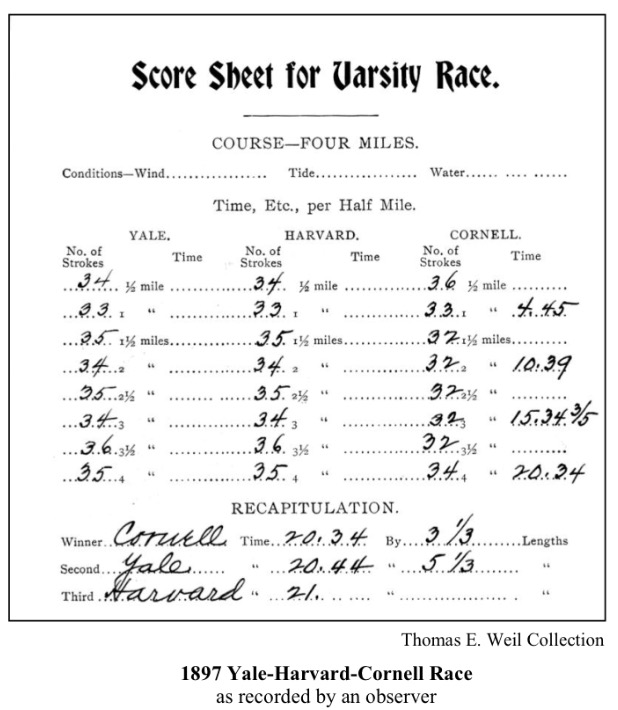 Score Sheet for Varsity Race.
COURSE—FOUR MILES.
Conditions—Wind.................. Tide.................. Water...... .... ......
Time, Etc., per Half Mile.
YALE. HARVARD. CORNELL.
No. of Strokes Time No. of Strokes Time No. of Strokes Time
34 ½ mile 34 ½ mile 36 ½ mile
33 1 " 33 1 " 33 1 " 4.45
35 1½ miles 35 1½ miles 32 1½ miles
34 2 " 34 2 " 32 2 " 10.39
35 2½ " 35 2½ " 32 2½ "
34 3 " 34 3 " 32 3 " 15.34 3/5
36 3½ " 36 3½ " 32 3½ "
35 4 " 35 4 " 34 4 " 20.34
RECAPITULATION.
Winner Cornell Time 20.34 By 3 1/3 Lengths
Second Yale " 20.44 " 5 1/3 "
Third Harvard " 21. " "
Thomas E. Weil Collection
1897 Yale-Harvard-Cornell Race
as recorded by an observer